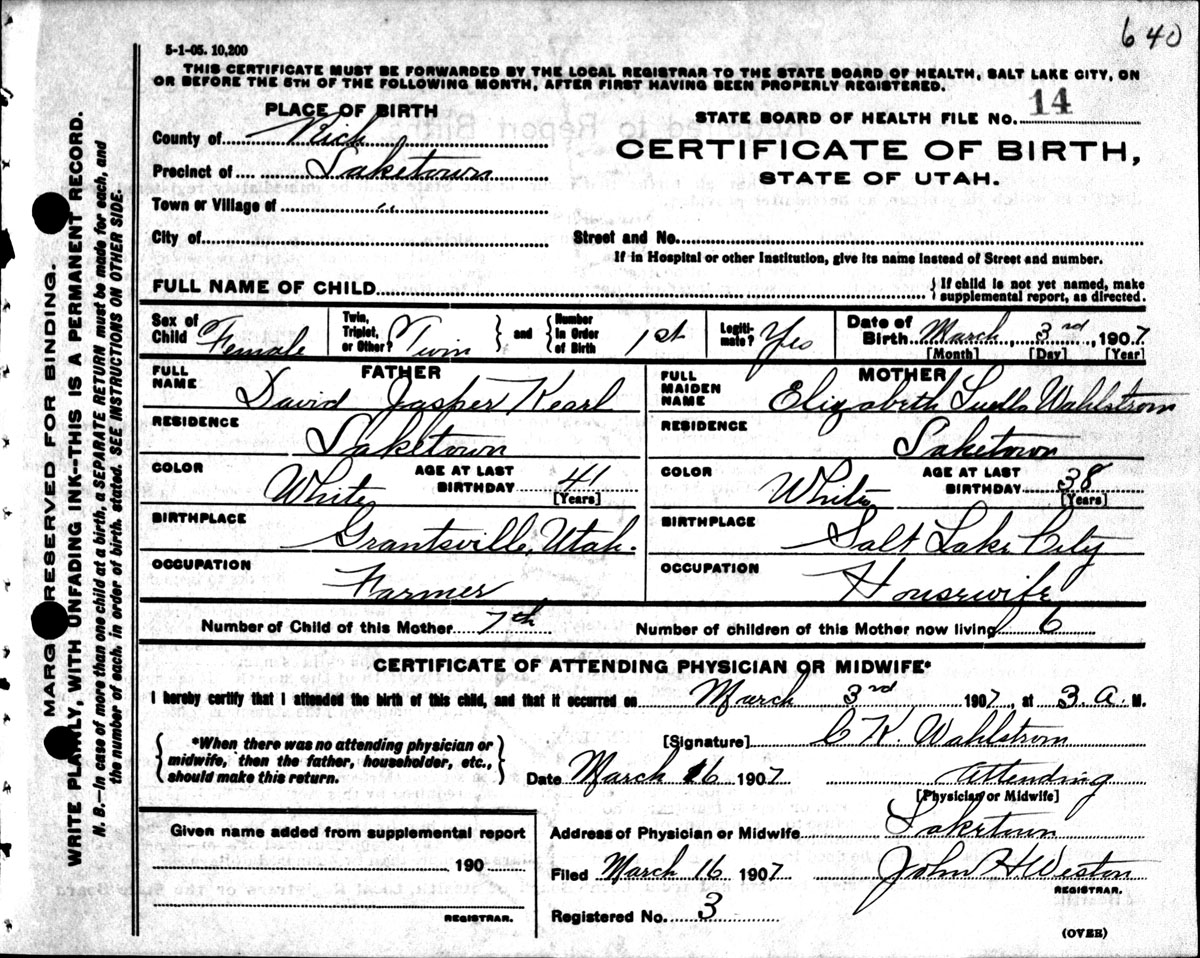 640
5-1-05. 10,200
THIS CERTIFICATE MUST BE FORWARDED BY THE LOCAL REGISTRAR TO THE STATE BOARD OF HEALTH, SALT LAKE CITY, ON
OR BEFORE THE 5TH OF THE FOLLOWING MONTH, AFTER FIRST HAVING BEEN PROPERLY REGISTERED.
PLACE OF BIRTH
County of Rich
Precinct of Laketown
Town or Village of "
City of
STATE BOARD OF HEALTH FILE NO. 14
CERTIFICATE OF BIRTH,
STATE OF UTAH.
Street and No.
If in Hospital or other Institution, give its name instead of Street and number.
FULL NAME OF CHILD
{ If child is not yet named, make
supplemental report, as directed.
Sex of Child Female
Twin, Triplet, or Other? Twin } and { Number in Order of Birth 1st
Legiti-mate? Yes
Date of Birth March, 3rd, 1907
[Month] [Day] [Year]
FATHER
FULL NAME David Jasper Kearl
RESIDENCE Laketown
COLOR White
AGE AT LAST BIRTHDAY 41
[Years]
BIRTHPLACE Grantsville, Utah.
OCCUPATION Farmer
MOTHER
FULL MAIDEN NAME Elizabeth Luella Wahlstrom
RESIDENCE Laketown
COLOR White
AGE AT LAST BIRTHDAY 38
[Years]
BIRTHPLACE Salt Lake City
OCCUPATION Housewife
Number of Child of this Mother 7th Number of children of this Mother now living 6
CERTIFICATE OF ATTENDING PHYSICIAN OR MIDWIFE*
I hereby certify that I attended the birth of this child, and that it occurred on March 3rd 1907, at 3. A. M.
{ *When there was no attending physician or
midwife, then the father, householder, etc.,
should make this return. }
[Signature] C K. Wahlstrom
Date March 16 1907 Attending
[Physician or Midwife]
Given name added from supplemental report
190
REGISTRAR.
Address of Physician or Midwife Laketown
Filed March 16 1907 John H Weston
REGISTRAR.
Registered No. 3
(OVER)
MARG RESERVED FOR BINDING.
WRITE PLAINLY, WITH UNFADING INK--THIS IS A PERMANENT RECORD.
N. B.—In case of more than one child at a birth, a SEPARATE RETURN must be made for each, and
the number of each, in order of birth, stated. SEE INSTRUCTIONS ON OTHER SIDE.